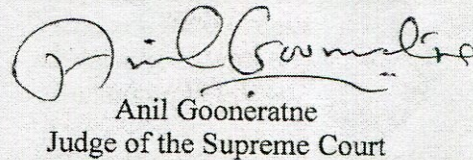 Anil Gooneratne
Anil Gooneratne
Judge of the Supreme Court